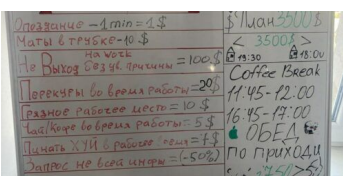 Опоздание - 1 min = 1$
Маты в трубке - 10$
на work
Не Выход без ув. причины = 100$
Перекуры во время работы - 20$
Грязное рабочее место = 10$
Чай/Кофе во время работы = 5$
Пинать ХУЙ в рабочее = 7$
Запрос не всей инфы = (-50%)
$ План 3500$
< 3500$ >
19:30
Coffee Break
11:45-12:00
16:45-17:00
ОБЕД
По приходи